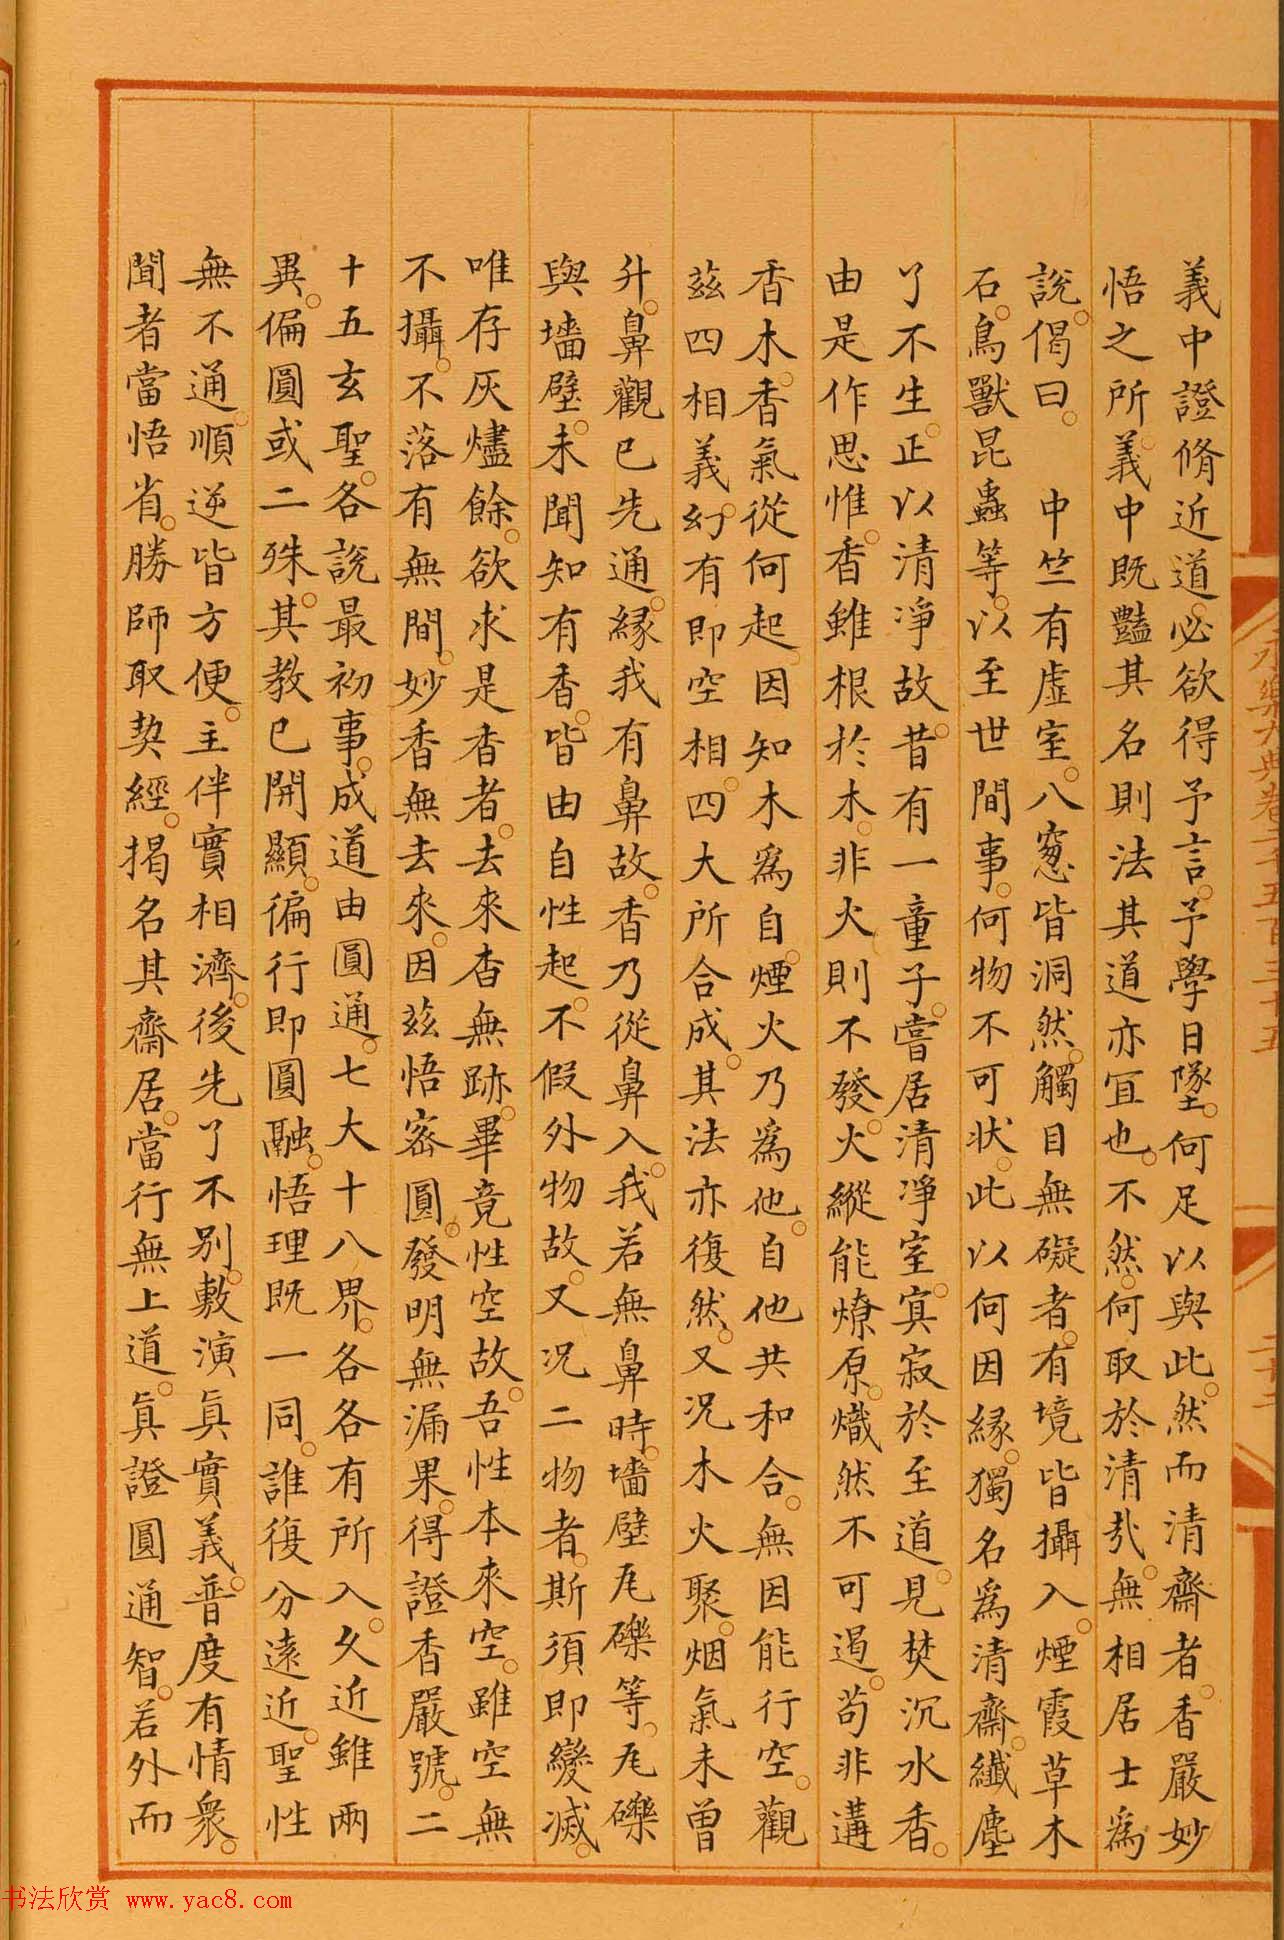 義中證脩近道必欲得予言予學日墜何足以與此然而清齋者香嚴妙
悟之所義中既豔其名則法其道亦宜也不然何取於清哉無相居士為
說偈曰 中竺有虛室八窓皆洞然觸目無礙者有境皆攝入煙霞草木
石鳥獸昆蟲等以至世間事何物不可狀此以何因緣獨名為清齋纖塵
了不生正以清凈故昔有一童子嘗居清凈室寘寂於至道見焚沉水香
由是作思惟香雖根於木非火則不發火縱能燎原熾然不可遏苟非遘
香木香氣從何起因知木為自煙火乃為他自他共和合無因能行空觀
茲四相義幻有即空相四大所合成其法亦復然又況木火聚烟氣未曾
升鼻觀已先通緣我有鼻故香乃從鼻入我若無鼻時墻壁瓦礫等瓦礫
與墻壁未聞知有香皆由自性起不假外物故又況二物者斯須即變滅
唯存灰燼餘欲求是香者去來杳無跡畢竟性空故吾性本來空雖空無
不攝不落有無間妙香無去來因茲悟密圓發明無漏果得證香嚴號二
十五玄聖各說最初事成道由圓通七大十八界各各有所入久近雖兩
異偏圓或二殊其教已開顯徧行即圓融悟理既一同誰復分遠近聖性
無不通順逆皆方便主伴實相濟後先了不別敷演真實義普度有情衆
聞者當悟省勝師取契經揭名其齋居當行無上道真證圓通智若外而
永樂大典卷二千五百三十五
二十二
书法欣赏 www.yac8.com